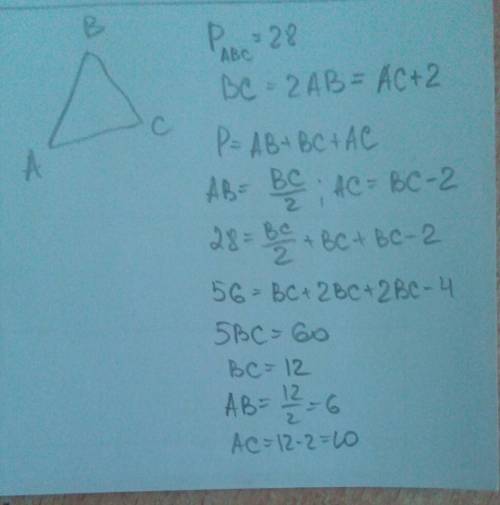 B
A
C
P_ABC = 28
BC = 2AB = AC+2
P = AB+BC+AC
AB = BC/2 ; AC = BC-2
28 = BC/2 + BC + BC-2
56 = BC+2BC+2BC-4
5BC = 60
BC = 12
AB = 12/2 = 6
AC = 12-2 = 10